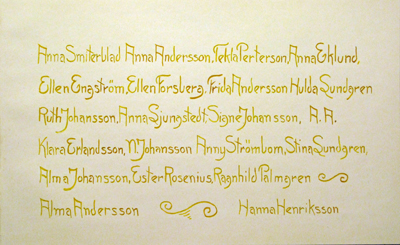 Anna Smiterblad Anna Andersson, Tekla Perterson, Anna Eklund,
Ellen Engström, Ellen Forsberg, Frida Andersson Hulda Sundgren
Ruth Johansson, Anna Sjungstedt, Signe Johansson, A. A.
Klara Erlandsson, N. Johansson Anny Strömbom, Stina Sundgren,
Alma Johansson, Ester Rosenius, Ragnhild Palmgren
Alma Andersson Hanna Henriksson